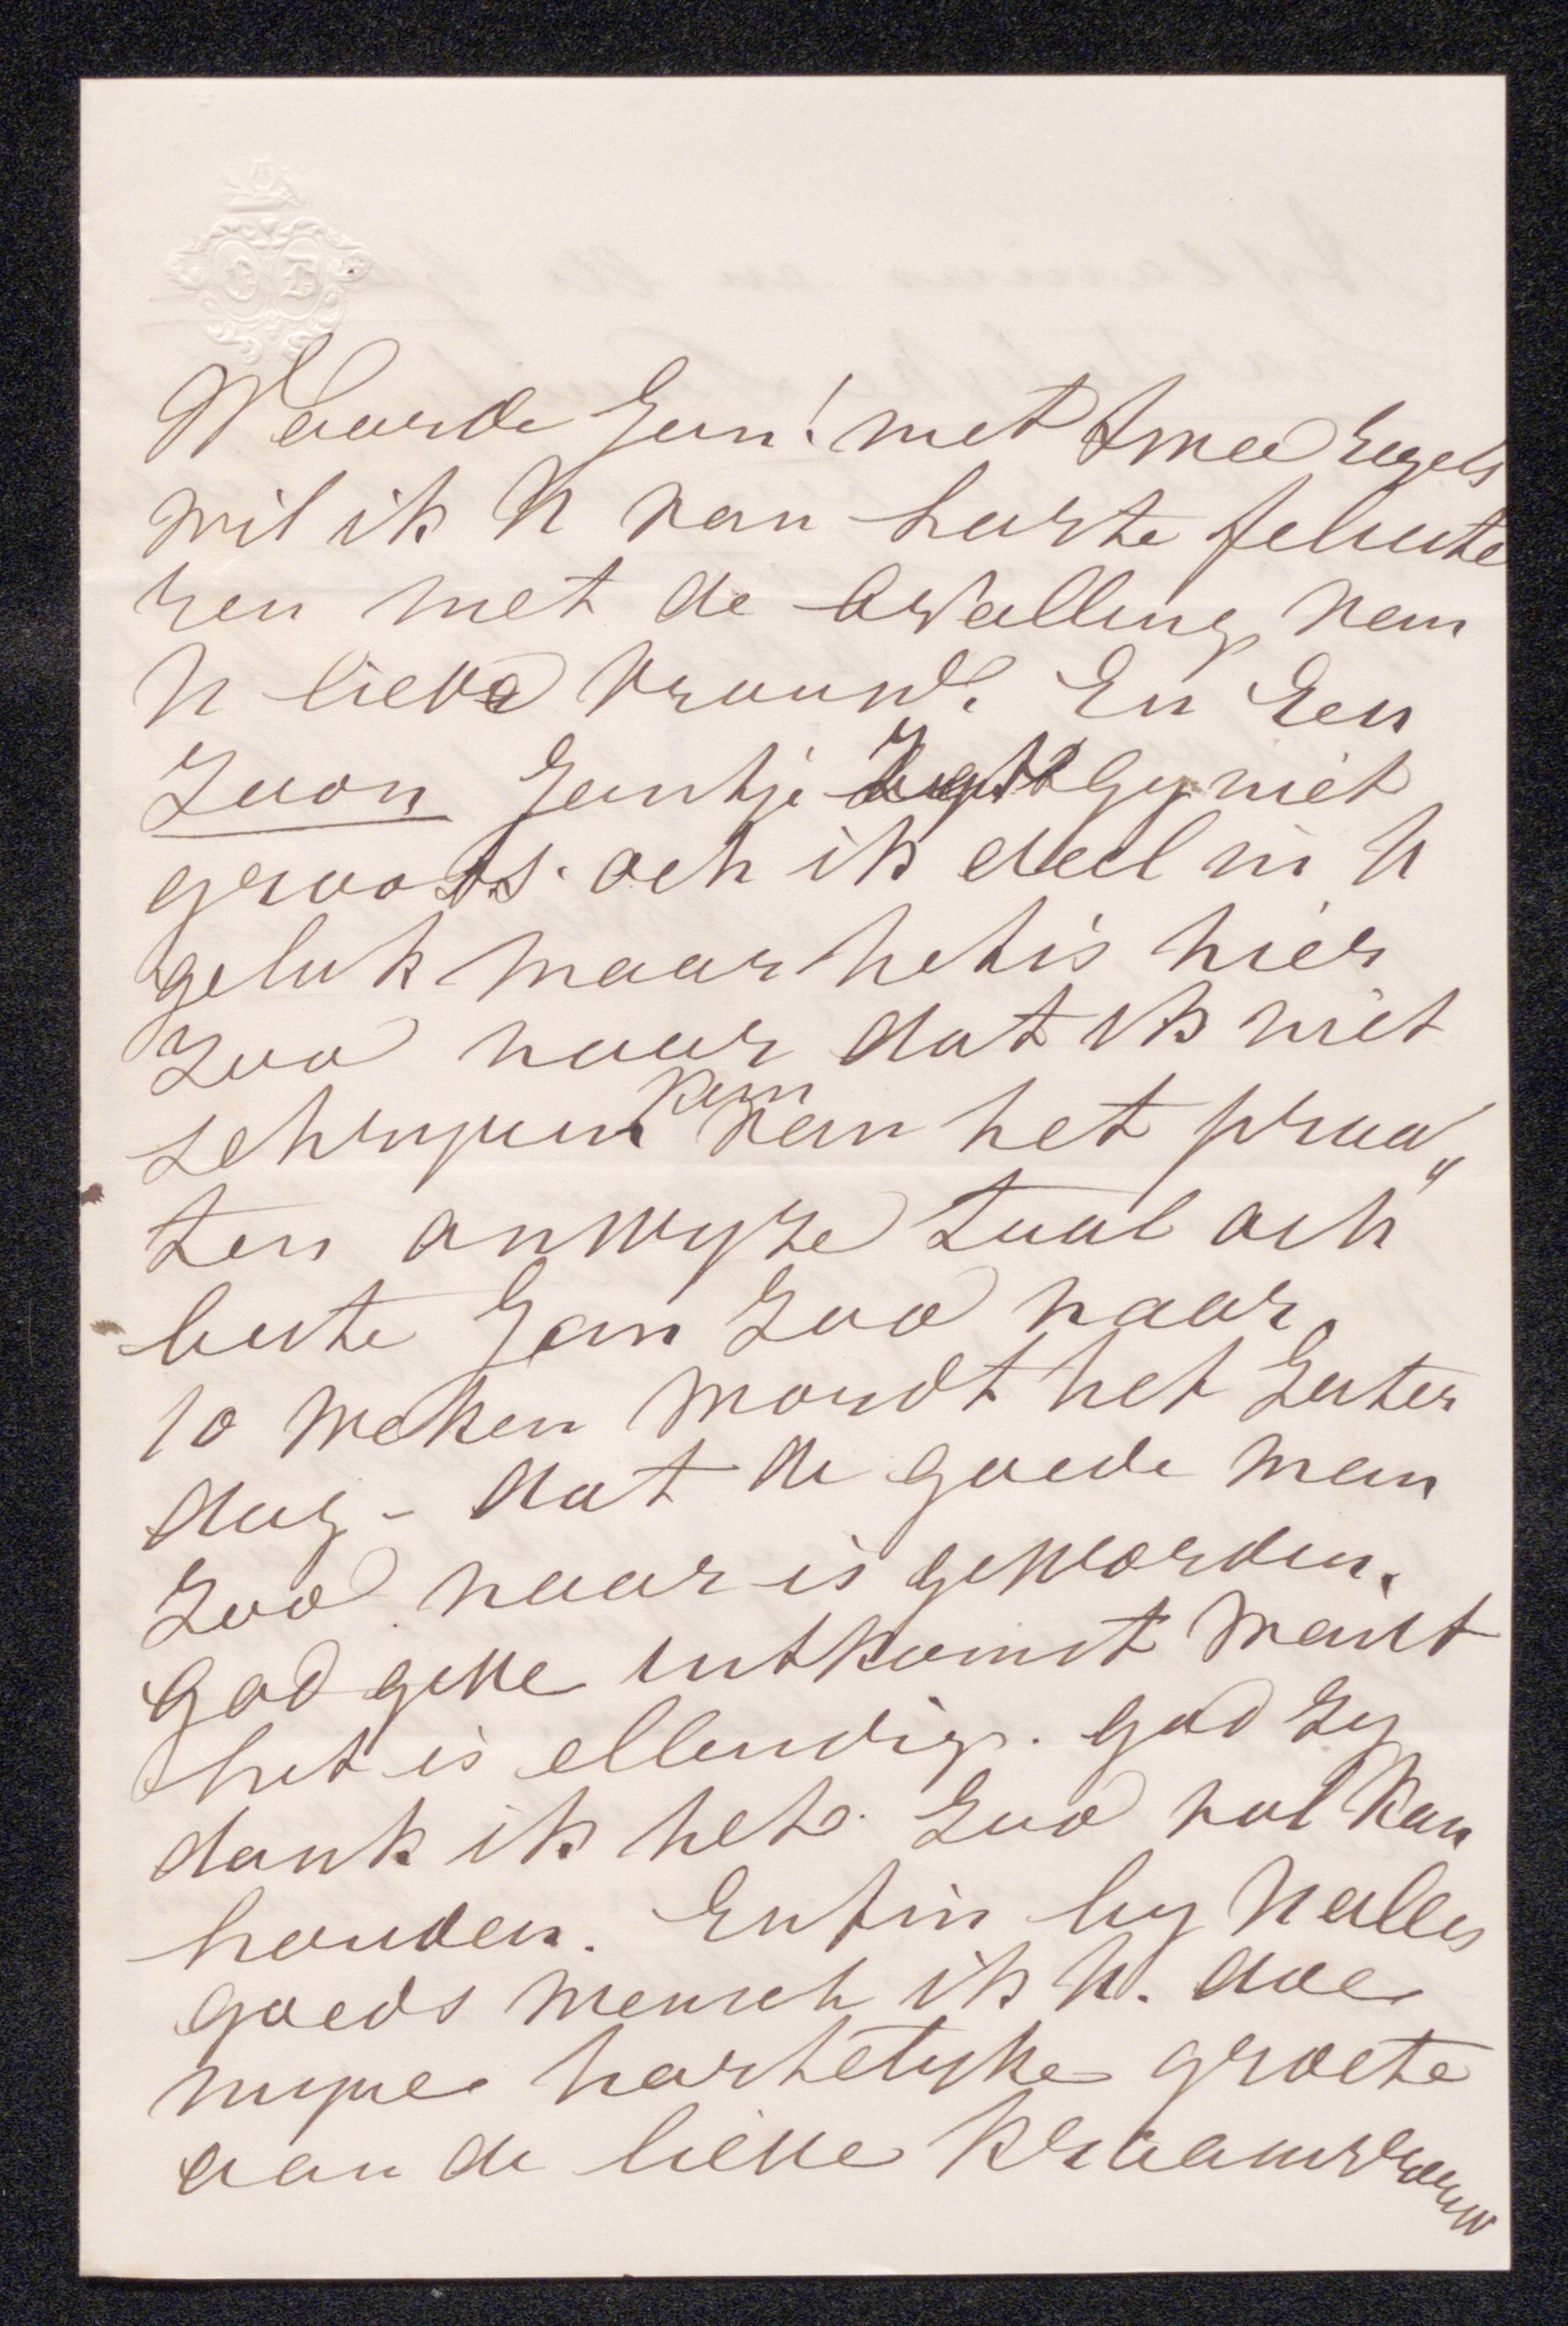 O B
Waarde Jan! met twee regels
wil ik U van harte felicite
ren met de bevalling van
U lieve vrouw. En Een
Zoon Jantje zyt Gy niet
groots. ach ik deel in U
geluk maar het is hier
Zoo naar dat ik niet
schryven kan van het praa„
ten onwyze taal ach
beste Jan Zoo naar
10 weken wordt het Zater
dag - dat de goede man
Zoo naar is geworden.
God geve uitkomst want
het is ellendig. God Zy
dank ik het Zoo vol kan
houden. Enfin hy U alles
goeds wensch ik U. doe
myne hartelyke groete
aan de lieve Kraamvrouw